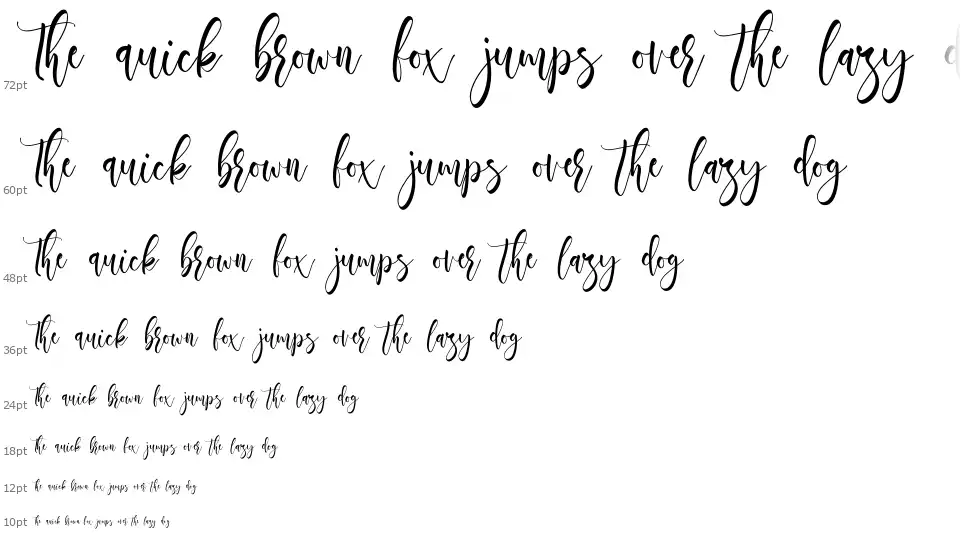 72pt the auick brown fox jumps over the lazy
60pt the auick brown fox jumps over the lazy dog
48pt the auick brown fox jumps over the lazy dog
36pt the auick brown fox jumps over the lazy dog
24pt the auick brown fox jumps over the lazy dog
18pt the auick brown fox jumps over the lazy dog
12pt the auick brown fox jumps over the lazy dog
10pt the auick brown fox jumps over the lazy dog